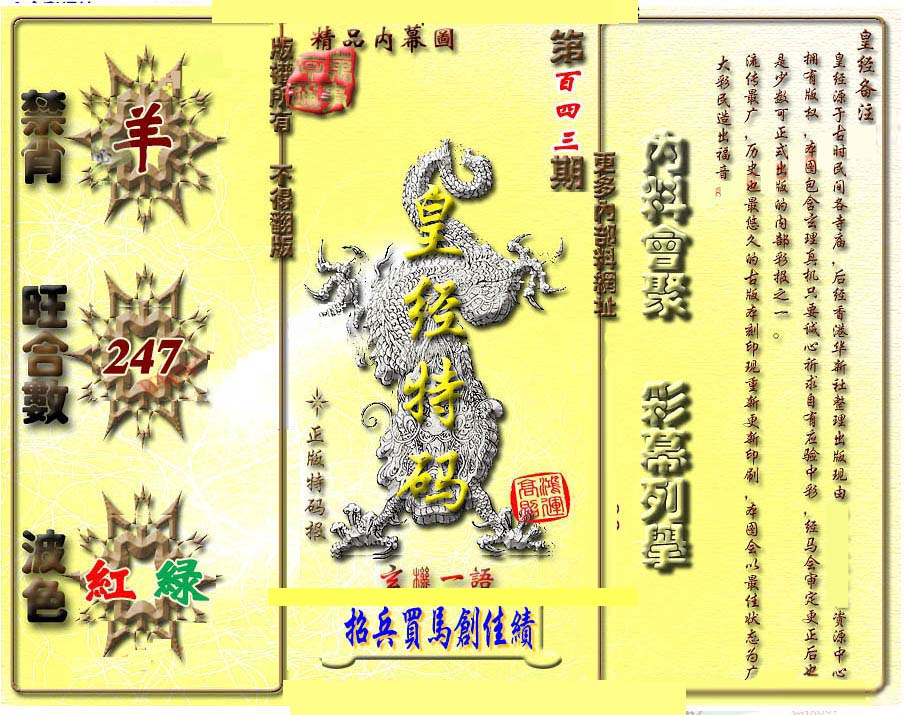 皇经备注
皇经源于古时民间各寺庙,后经香港华新社整理出版现由 资源中心
拥有版权,本图包含玄理真机只要诚心祈求自有应验中彩,经马会审定更正后也
是少数可正式出版的内部彩报之一。
流传最广,历史也最悠久的古版本刻印现重新更新印刷,本图会以最佳状态为广
大彩民造出福音
內料會聚
彩幕列學
更多內部料網址
第百四三期
精品内幕圖
皇经特码
正版特码报
鴻運
高照
玄機一語
招兵買馬創佳績
版權所有 不得翻版
禁肖
羊
旺合數
247
波色
紅 綠